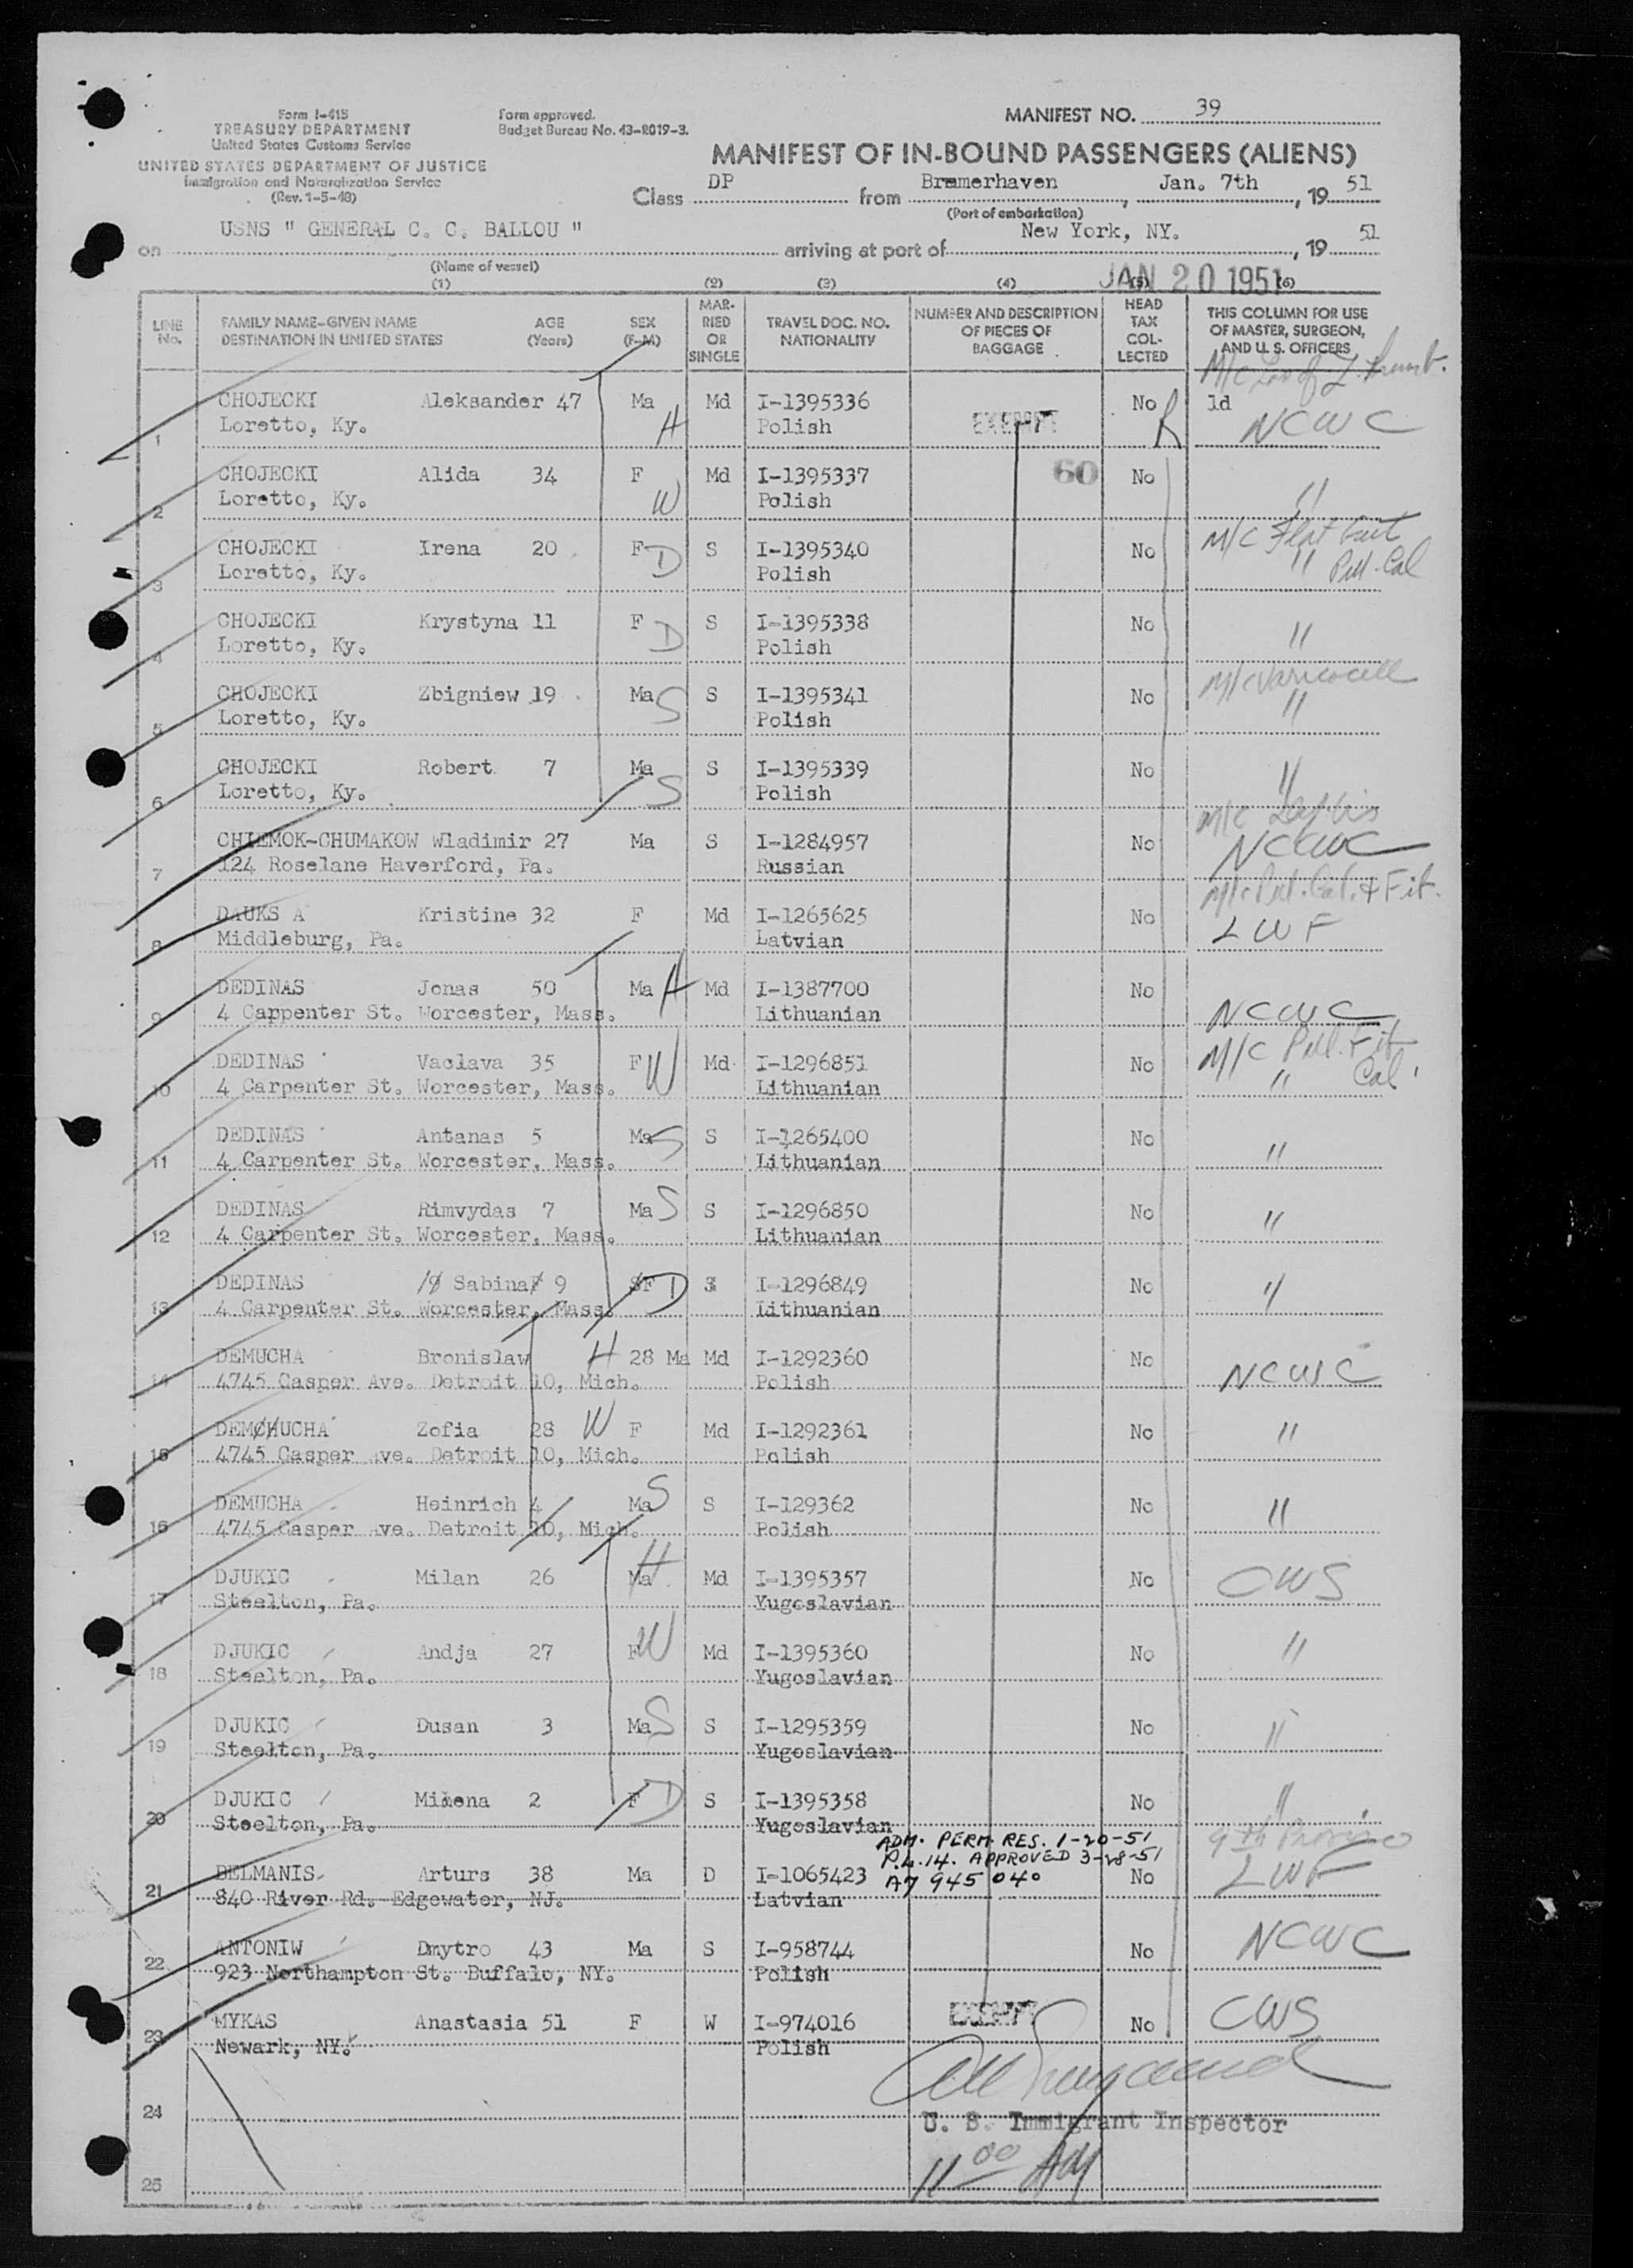 Form I-415
TREASURY DEPARTMENT
United States Customs Service
UNITED STATES DEPARTMENT OF JUSTICE
Immigration and Naturalization Service
(Rev. 1-5-48)
Form approved.
Budget Bureau No. 43-R019-3.
MANIFEST NO. 39
MANIFEST OF IN-BOUND PASSENGERS (ALIENS)
Class DP from Bremerhaven, Jan. 7th, 19 51
(Port of embarkation)
on USNS " GENERAL C. C. BALLOU " arriving at port of New York, NY., 19 51
(Name of vessel)
JAN 20 1951
(1) (2) (3) (4) (5) (6)
LINE No. FAMILY NAME-GIVEN NAME DESTINATION IN UNITED STATES AGE (Years) SEX (F-M) MARRIED OR SINGLE TRAVEL DOC. NO. NATIONALITY NUMBER AND DESCRIPTION OF PIECES OF BAGGAGE HEAD TAX COLLECTED THIS COLUMN FOR USE OF MASTER, SURGEON, AND U. S. OFFICERS
M/C
1 CHOJECKI Aleksander 47 Ma H Md I-1395336 EXEMPT No 1d
Loretto, Ky. Polish NCWC
2 CHOJECKI Alida 34 F W Md I-1395337 60 No
Loretto, Ky. Polish "
3 CHOJECKI Irena 20 F D S I-1395340 No M/C Flat Feet
Loretto, Ky. Polish " Pul. Cal
4 CHOJECKI Krystyna 11 F D S I-1395338 No
Loretto, Ky. Polish "
5 CHOJECKI Zbigniew 19 Ma S S I-1395341 No M/C Varicocele
Loretto, Ky. Polish "
6 CHOJECKI Robert 7 Ma S S I-1395339 No "
Loretto, Ky. Polish
M/C
7 CHLEMOK-CHUMAKOW Wladimir 27 Ma S I-1284957 No NCWC
124 Roselane Haverford, Pa. Russian
M/C Pul. Cal. & Fib.
8 DAUKS A Kristine 32 F Md I-1265625 No LWF
Middleburg, Pa. Latvian
9 DEDINAS Jonas 50 Ma H Md I-1387700 No
4 Carpenter St. Worcester, Mass. Lithuanian NCWC
10 DEDINAS Vaclava 35 F W Md I-1296851 No M/C Pul. Fib
4 Carpenter St. Worcester, Mass. Lithuanian " Cal.
11 DEDINAS Antanas 5 Ma S S I-1265400 No
4 Carpenter St. Worcester, Mass. Lithuanian "
12 DEDINAS Rimvydas 7 Ma S S I-1296850 No
4 Carpenter St. Worcester, Mass. Lithuanian "
13 DEDINAS Sabina 9 F D S I-1296849 No
4 Carpenter St. Worcester, Mass. Lithuanian "
14 DEMUCHA Bronislaw H 28 Ma Md I-1292360 No
4745 Casper Ave. Detroit 10, Mich. Polish NCWC
15 DEMCHUCHA Zofia 28 W F Md I-1292361 No "
4745 Casper Ave. Detroit 10, Mich. Polish
16 DEMUCHA Heinrich 4 Ma S S I-129362 No "
4745 Casper Ave. Detroit 10, Mich. Polish
17 DJUKIC Milan 26 Ma H Md I-1395357 No CWS
Steelton, Pa. Yugoslavian
18 DJUKIC Andja 27 F W Md I-1395360 No "
Steelton, Pa. Yugoslavian
19 DJUKIC Dusan 3 Ma S S I-1295359 No "
Steelton, Pa. Yugoslavian
20 DJUKIC Milena 2 F D S I-1395358 No "
Steelton, Pa. Yugoslavian
ADM. PERM. RES. 1-20-51
P.L. 14. APPROVED 3-28-51
A7 945 040
9th Proviso
21 BELMANIS Arturs 38 Ma D I-1065423 No LWF
840 River Rd. Edgewater, NJ. Latvian
22 ANTONIW Dmytro 43 Ma S I-958744 No NCWC
923 Northampton St. Buffalo, NY. Polish
23 MYKAS Anastasia 51 F W I-974016 EXEMPT No CWS
Newark, NY. Polish
24
U. S. Immigrant Inspector
11 00 AM
25